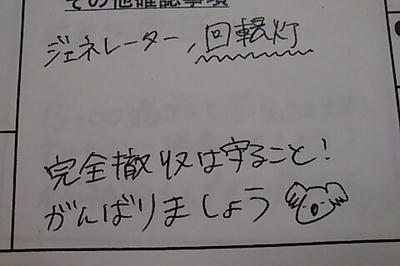 その他確認事項
ジェネレーター,回転灯
完全撤収は守ること!
がんばりましょう